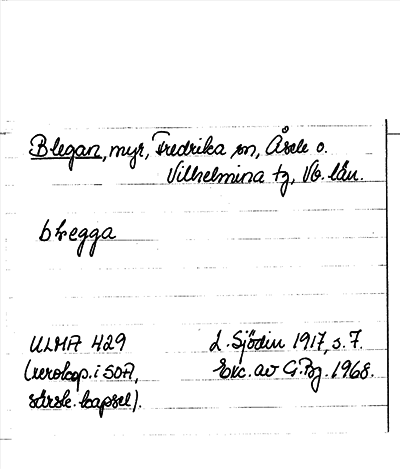 Blegan, myr, Fredrika sn, Åsele o.
Vilhelmina tg, Vb. län.
błegga
ULMA 429
(xerokop. i SOA,
särsk. kapsel).
L. Sjödin 1917, s. 7.
Exc. av G. Bg. 1968.